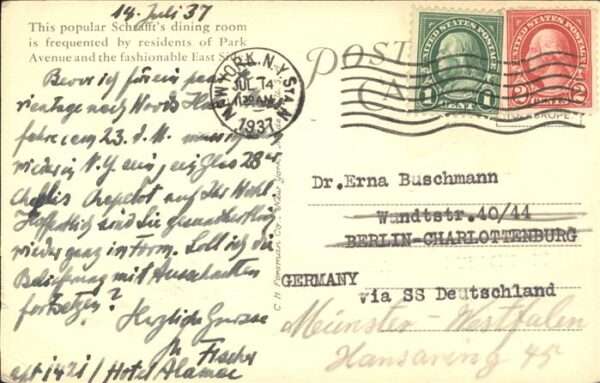 14. Juli 37
This popular Schrafft's dining room
is frequented by residents of Park
Avenue and the fashionable East S
Bevor ich für ein paar
tage nach Woods Ho
fahre am 23. d. M. muss ich
wieder in N.Y. ein Glas 28er
auf Ihr Wohl
Hoffentlich sind Sie
wieder ganz in Form. Soll ich die
Belieferung mit Ansichtskarten
fortsetzen?
Herzliche Grüsse
Ihr Fischer
apt 1421 / Hotel Alamac
POST
CA
NEW YORK, N.Y. STA.
JUL 14
1937
UNITED STATES POSTAGE
1 CENT 1
UNITED STATES POSTAGE
2 CENTS 2
Dr. Erna Buschmann
Wundtstr. 40/44
BERLIN-CHARLOTTENBURG
GERMANY
via SS Deutschland
Münster-Westfalen
Hansaring 45